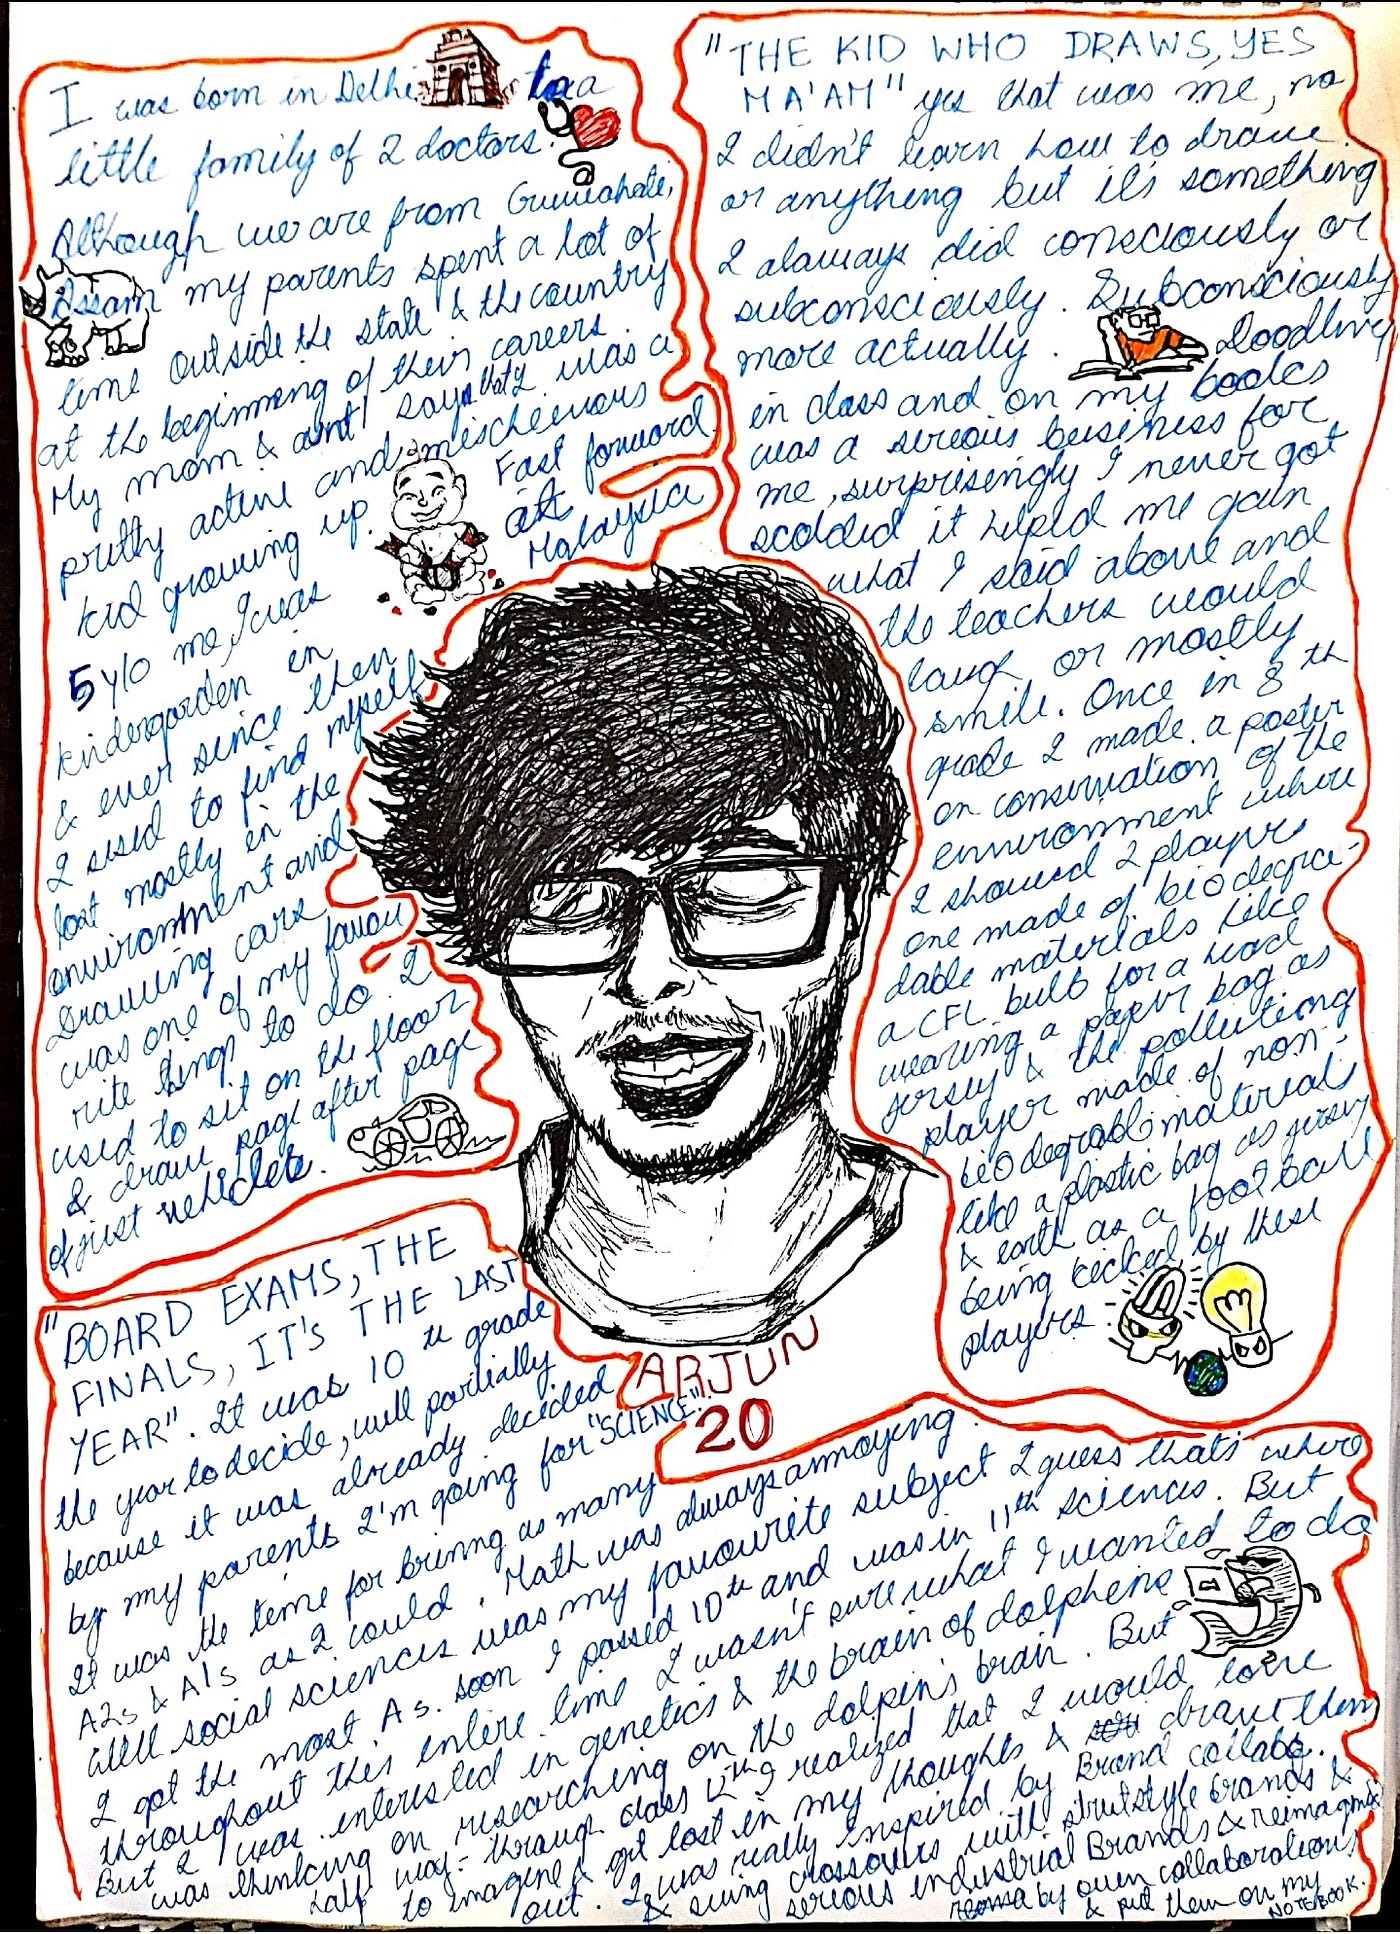 I was born in Delhi to a
little family of 2 doctors.
Although we are from Guwahati,
Assam my parents spent a lot of
time outside the state & the country
at the beginning of their careers.
My mom & aunt says that I was a
pretty active and mischeivous
kid growing up. Fast forward
5 y/o me, I was at
kindergarden in Malaysia
& ever since then
I used to find myself
lost mostly in the
environment and
Drawing cars
was one of my favou
rite things to do. I
used to sit on the floor
& draw page after page
of just vehicles.
"THE KID WHO DRAWS, YES
MA'AM" yes that was me, no
I didn't learn how to draw
or anything but it's something
I always did consciously or
subconsciously. Subconsciously
more actually. Doodling
in class and on my books
was a serious business for
me, surprisingly I never got
scolded it helped me gain
what I said above and
the teachers would
laugh or mostly
smile. Once in 8th
grade I made a poster
on conservation of the
environment where
I showed 2 players
one made of biodegra-
dable materials like
a CFL bulb for a head
wearing a paper bag as
jersey & the polluting
player made of non-
biodegrabl material
like a plastic bag as jersey
& earth as a football
being kicked by these
players
ARJUN
20
"BOARD EXAMS, THE
FINALS, IT'S THE LAST
YEAR". It was 10th grade
the year to decide, well partially
because it was already decided
by my parents I'm going for "SCIENCE".
It was the time for brinng as many
A2s & A1s as I could. Math was always annoying.
Well social sciences was my favourite subject I guess that's where
I got the most As. soon I passed 10th and was in 11th sciences. But
throughout this entire time I wasn't sure what I wanted to do
But I was interested in genetics & the brain of dolphins
was thinking on researching on the dolpin's brain. But
half way-through class 12th I realized that I would love
to imagine & get lost in my thoughts & draw them
out. I was really inspired by Brand collabs.
& seing crossovers with strutstyle brands &
serious industrial Brands & reimagine
by own collaborations
& put them on my
NOTEBOOK.